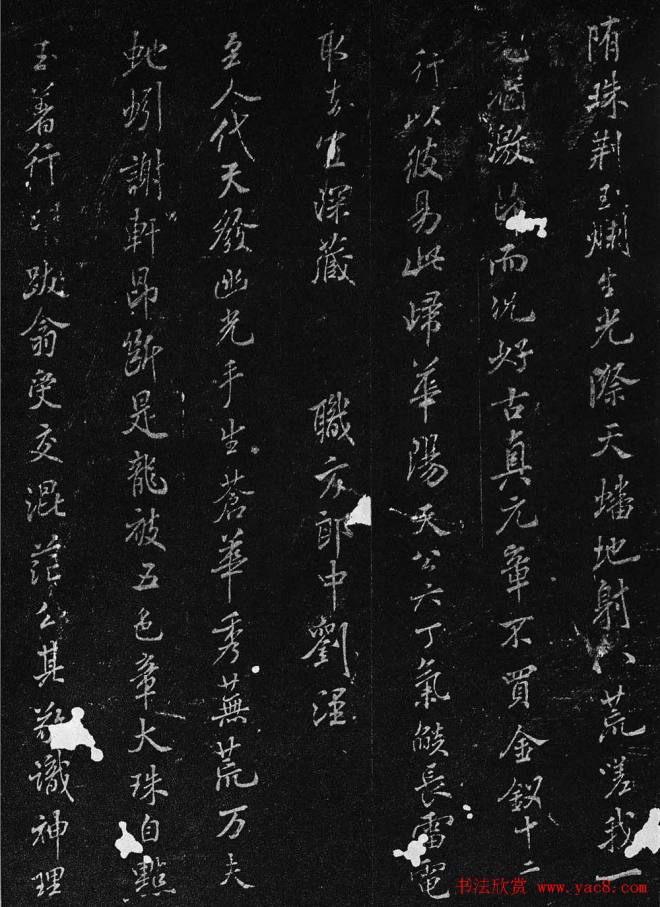 隋珠荆玉烂生光際天蟠地射八荒嗟我一
見猶激而况好古真元章不買金釵十二
行以彼易此歸華陽天公六丁氣燄長雷電
取去宜深藏 職方郎中劉涇
至人代天發幽光手生蒼華秀蕪荒万夫
虵蚓謝軒昂斷是龍被五色章大珠自點
玉著行跋翁受交混茫公其識神理
书法欣赏 www.yac8.com